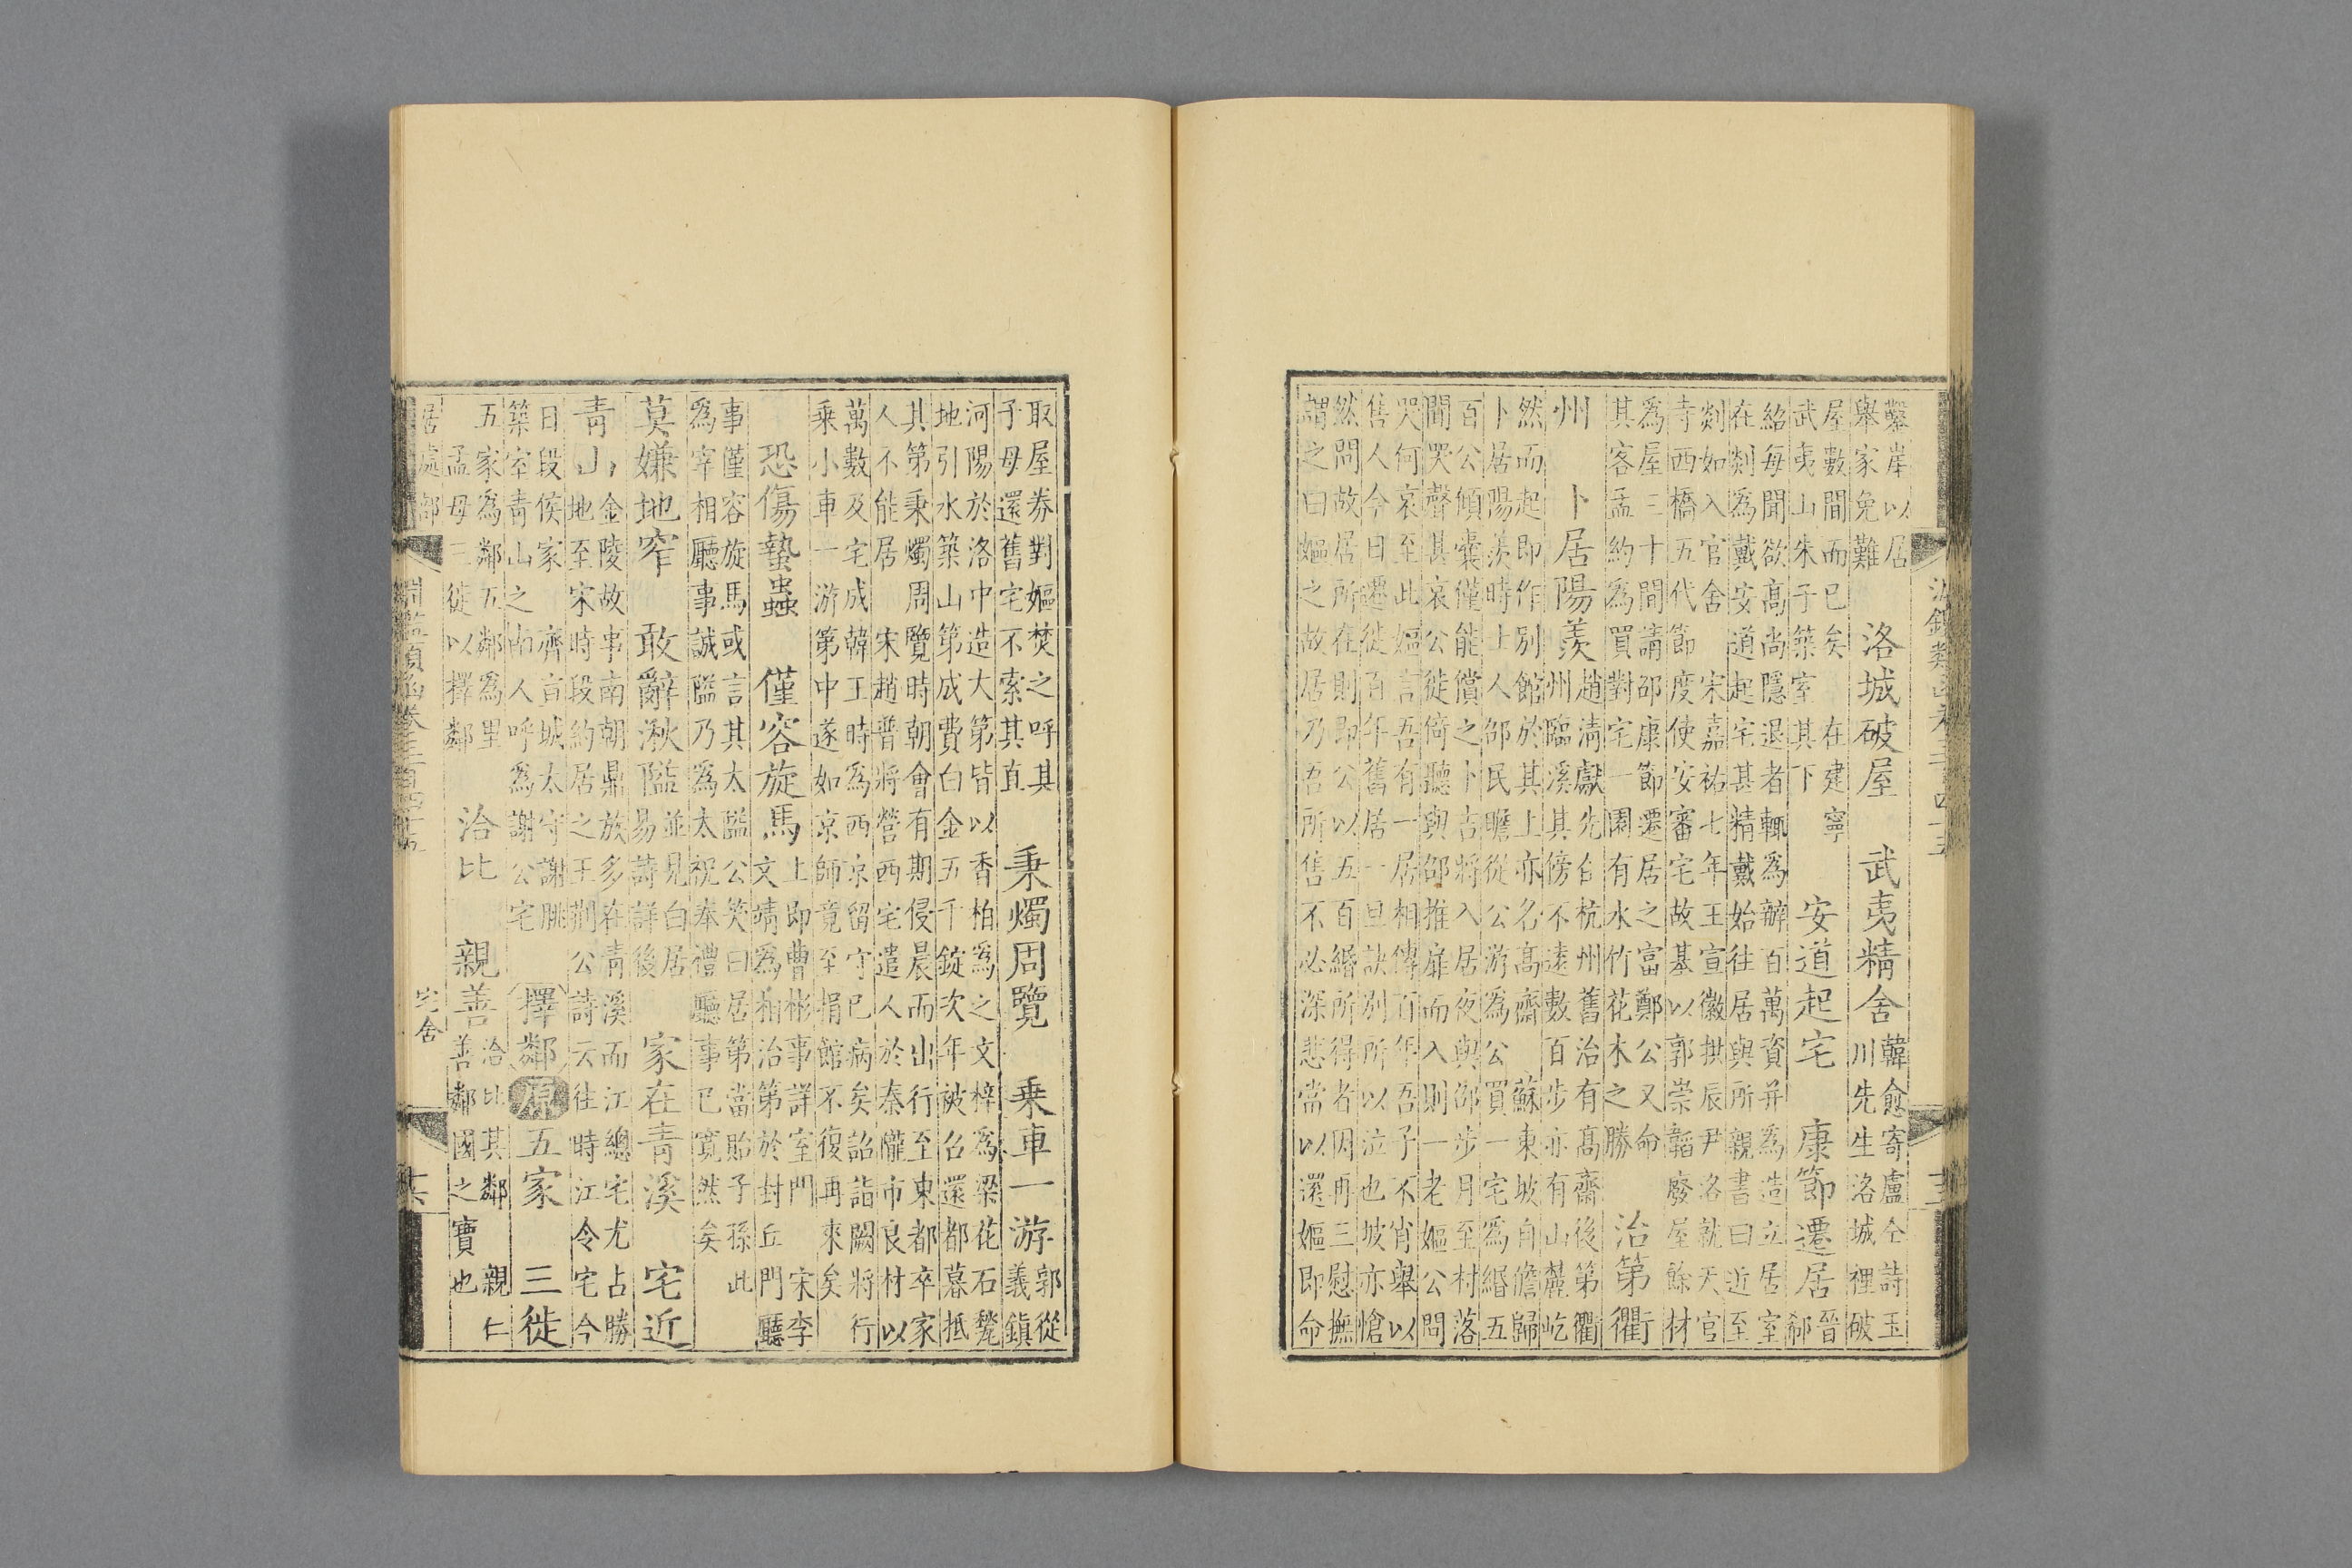 淵鑑類函卷三百四十五
鑿岸以居
舉家免難
洛城破屋　武夷精舍
韓愈寄盧仝詩玉
川先生洛城裡破
屋數間而已矣　在建寧
武夷山朱子築室其下
安道起宅　康節遷居
晉
郗
紹每聞欲高尚隱退者輒為辦百萬資并為造立居室
在剡為戴安道起宅甚精戴始往居與所親書曰近至
剡如入官舍　宋嘉祐七年王宣徽拱辰尹洛就天官
寺西橋五代節度使安審宅故基以郭崇韜廢屋餘材
為屋三十間請邵康節遷居之富鄭公又命
其客孟約為買對宅一園有水竹花木之勝
治第衢
州　卜居陽羨
趙清獻先任杭州舊治有高齋後第衢
州臨溪其傍不遠數百步亦有山麓屹
然而起即作別館於其上亦名高齋　蘇東坡自儋歸
卜居陽羨時士人邵民瞻從公游為公買一宅為緡五
百公傾囊僅能償之卜吉將入居夜與邵步月至村落
聞哭聲甚哀公徙倚聽與邵推扉而入則一老嫗公問
哭何哀至此嫗言吾有一居相傳百年吾子不肖舉以
售人今日遷徙百年舊居一旦訣別所以泣也坡亦愴
然問故居所在則即公以五百緡所得者因再三慰撫
謂之曰嫗之故居乃吾所售不必深悲當以還嫗即命
取屋券對嫗焚之呼其
子母還舊宅不索其直
秉燭周覽　乗車一游
郭從
義鎮
河陽於洛中造大第皆以香柏為之文梓為梁花石甃
地引水築山第成費白金五千錠次年被召還都暮抵
其第秉燭周覽時朝會有期侵晨而出行至東都卒家
人不能居　宋趙普將營西宅遣人於秦隴市良材以
萬數及宅成韓王時為西京留守已病矣詔詣闕將行
乗小車一游第中遂如京師竟至捐館不復再來矣
恐傷蟄蟲　僅容旋馬
上即曹彬事詳室門　宋李
文靖為相治第於封丘門廳
事僅容旋馬或言其太隘公笑曰居第當貽子孫此
為宰相廳事誠隘乃為太祝奉禮廳事已寛然矣
莫嫌地窄　敢辭湫隘
並見白居
易詩詳後
家在青溪　宅近
青山
金陵故事南朝鼎族多在青溪而江總宅尤占勝
地至宋時段約居之王荊公詩云往時江令宅今
日段侯家　齊宣城太守謝朓
築室青山之南人呼為謝公宅
擇鄰　原　五家　三徙
五家為鄰五鄰為里
孟母三徙以擇鄰
洽比　親善
洽比其鄰　親仁
善鄰國之寶也
居處部　淵鑑類函卷三百四十五　宅舍　十六